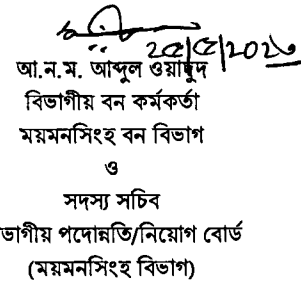 আ.ন.ম. আব্দুল ওয়াদুদ
বিভাগীয় বন কর্মকর্তা
ময়মনসিংহ বন বিভাগ
ও
সদস্য সচিব
ভাগীয় পদোন্নতি/নিয়োগ বোর্ড
(ময়মনসিংহ বিভাগ)